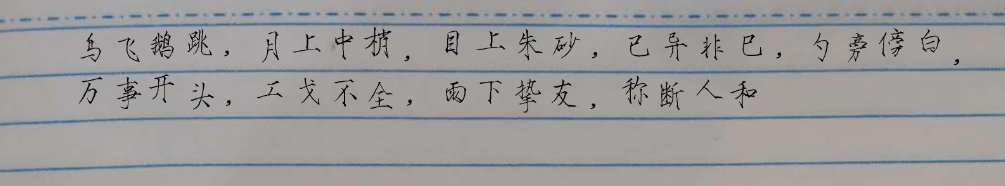 鸟飞鹅跳，月上中梢，目上朱砂，已异非巴，勺旁傍白，
万事开头，工戈不全，雨下挚友，称断人和